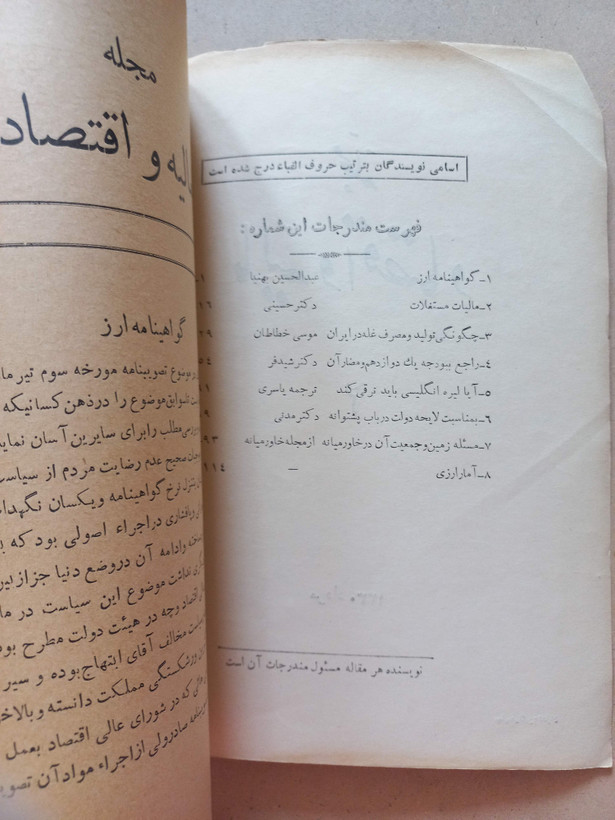 اسامی نویسندگان بترتیب حروف الفباء درج شده است
فهرست مندرجات این شماره :
۱ـ گواهینامه ارز عبدالحسین بهنیا ۱
۲ـ مالیات مستغلات دکتر حسینی ۱۶
۳ـ چگونگی تولید و مصرف غله در ایران موسی خطاطان ۲۹
۴ـ راجع ببودجه یك دوازدهم و مضار آن دکتر شیدفر ۵۴
۵ـ آیا لیره انگلیسی باید ترقی کند ترجمه یاسری
۶ـ بمناسبت لایحه دولت در باب پشتوانه دکتر مدنی
۷ـ مسئله زمین و جمعیت آن در خاورمیانه از مجله خاورمیانه ۹۳
۸ـ آمار ارزی — ۱۱۴
نویسنده هر مقاله مسئول مندرجات آن است
مجله
و اقتصاد
گواهینامه ارز
موضوع تصویبنامه مورخه سوم تیر ماه
موضوع را در ذهن کسانیکه
مطلب را برای سایرین آسان نماید
صحیح عدم رضایت مردم از سیاست
تنزل نرخ گواهینامه و یکسان نگهداشتن
در اجراء اصولی بود که
وادامه آن در وضع دنیا جز ازبین
موضوع این سیاست در ماه
وچه در هیئت دولت مطرح بود
مخالف آقای ابتهاج بوده و سیر
ورشکستگی مملکت دانسته و بالاخره
که در شورای عالی اقتصاد بعمل
صادر ولی از اجراء مواد آن